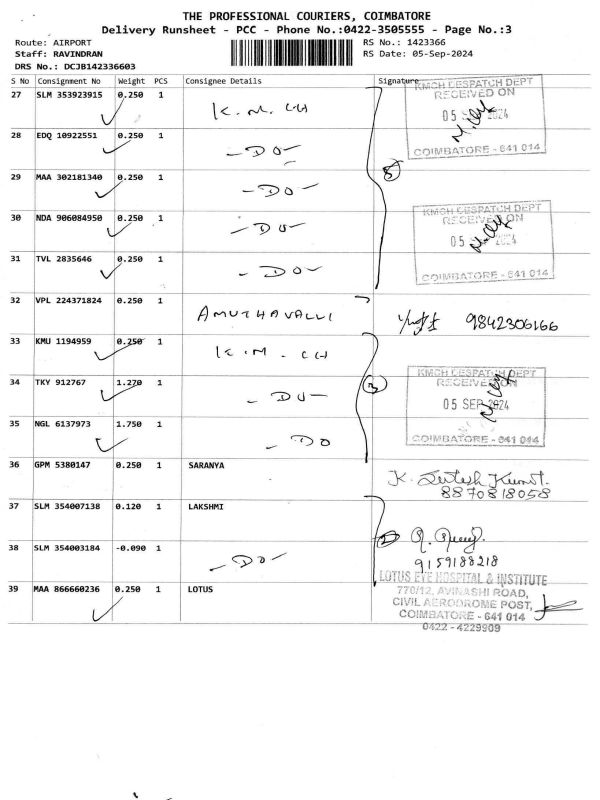 THE PROFESSIONAL COURIERS, COIMBATORE
Delivery Runsheet - PCC - Phone No.:0422-3505555 - Page No.:3
Route: AIRPORT
Staff: RAVINDRAN
DRS No.: DCJB142336603
RS No.: 1423366
RS Date: 05-Sep-2024
S No Consignment No Weight PCS Consignee Details Signature
27 SLM 353923915 0.250 1 K.M.CH
28 EDQ 10922551 0.250 1 -DO-
29 MAA 302181340 0.250 1 -DO-
30 NDA 906084950 0.250 1 -DO-
31 TVL 2835646 0.250 1 -DO-
5
KMCH DESPATCH DEPT
RECEIVED ON
05 SEP 2024
COIMBATORE - 641 014
KMCH DESPATCH DEPT
RECEIVED ON
05 2024
COIMBATORE - 641 014
32 VPL 224371824 0.250 1 AMUTHAVALLI 9842306166
33 KMU 1194959 0.250 1 K.M.CH
34 TKY 912767 1.270 1 -DO-
35 NGL 6137973 1.750 1 -DO
3
KMCH DESPATCH DEPT
RECEIVED ON
05 SEP 2024
COIMBATORE - 641 014
36 GPM 5380147 0.250 1 SARANYA K.
8870818058
37 SLM 354007138 0.120 1 LAKSHMI
38 SLM 354003184 -0.090 1 -DO-
2
9159188218
39 MAA 866660236 0.250 1 LOTUS
LOTUS EYE HOSPITAL & INSTITUTE
770/12, AVINASHI ROAD,
CIVIL AERODROME POST,
COIMBATORE - 641 014
0422 - 4229909